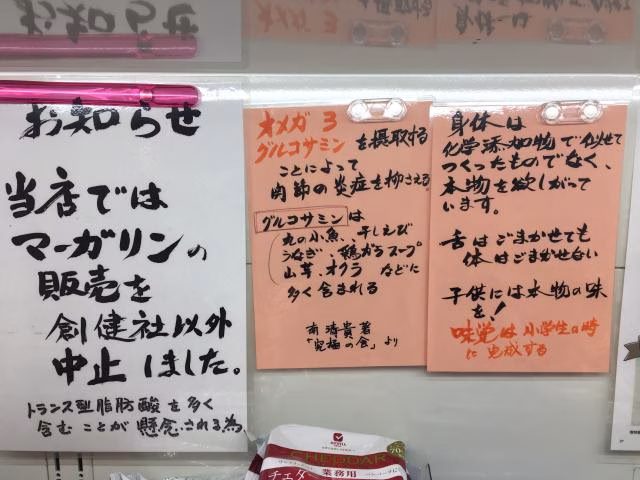 お知らせ
当店では
マーガリンの
販売を
創健社以外
中止しました。
トランス型脂肪酸を多く
含むことが懸念される為
オメガ3
グルコサミンを摂取する
ことによって
関節の炎症を抑さえる
グルコサミンは
丸の小魚、干しえび
うなぎ、鶏がらスープ
山芋、オクラなどに
多く含まれる
南清貴著
「究極の食」より
身体は
化学添加物で似せて
つくったものでなく、
本物を欲しがって
います。
舌はごまかせても
体はごまかせない
子供には本物の味
を!
味覚は小学生の時
に完成する
CHEDDAR
業務用
チェダー